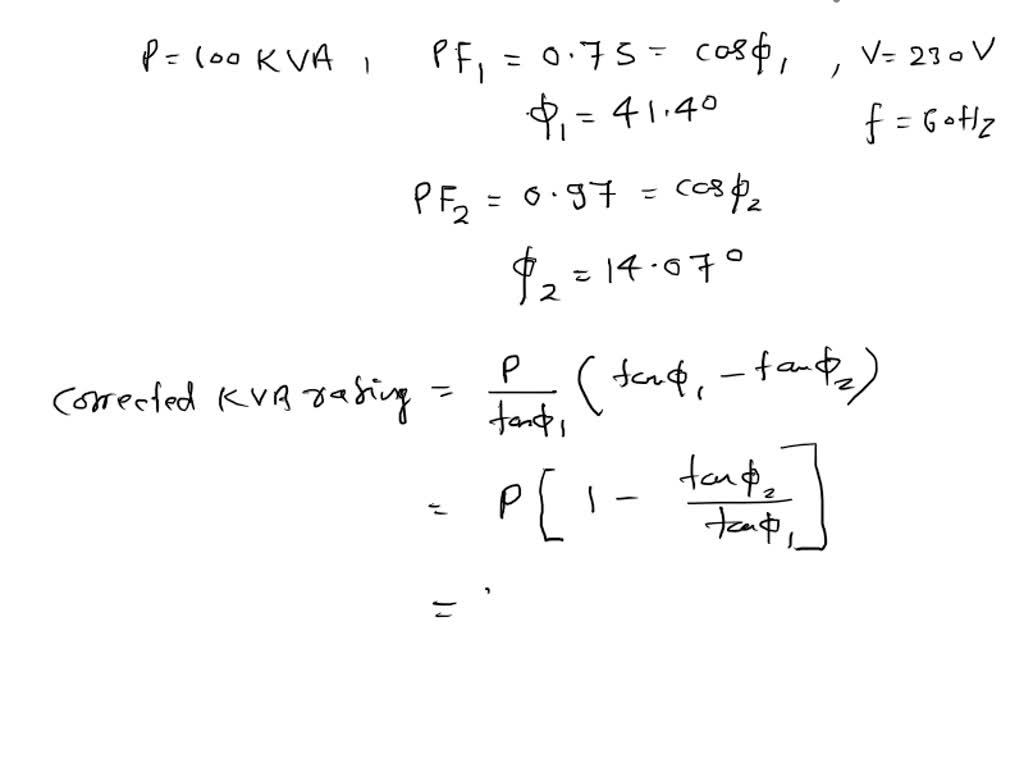 P = 100 KVA , PF₁ = 0.75 = cosϕ₁ , V = 230 V
ϕ₁ = 41.4° f = 60Hz
PF₂ = 0.97 = cosϕ₂
ϕ₂ = 14.07°
Corrected KVA rating = P/tanϕ₁ (tanϕ₁ - tanϕ₂)
= P[1 - tanϕ₂/tanϕ₁]
=